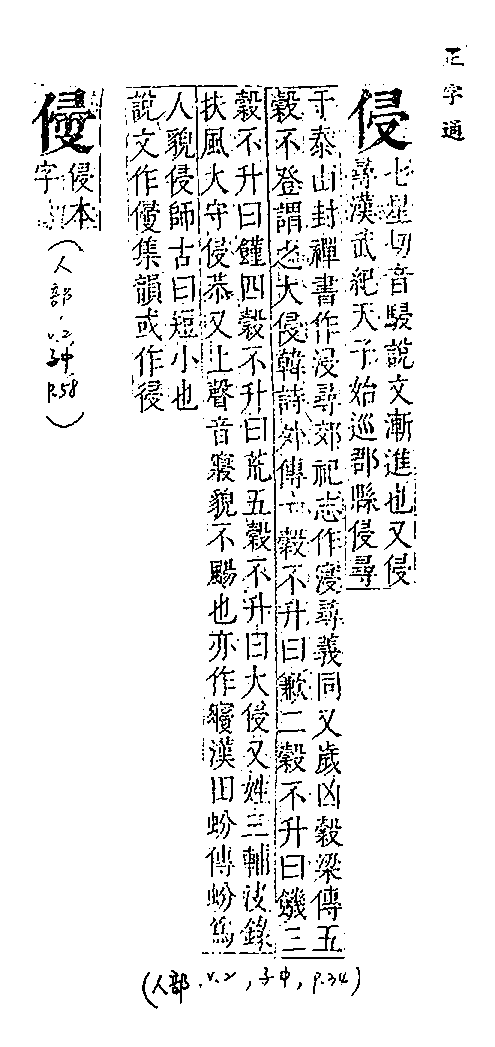 正字通
侵
七星切音駸說文漸進也又侵
尋漢武紀天子始巡郡縣侵尋
于泰山封禪書作浸尋郊祀志作寖尋義同又歲凶穀梁傳五
穀不登謂之大侵韓詩外傳一穀不升曰歉二穀不升曰饑三
穀不升曰饉四穀不升曰荒五穀不升曰大侵又姓三輔決錄
扶風大守侵恭又上聲音寢貌不颺也亦作漢田蚡傳蚡為
人貌侵師古曰短小也
說文作集韻或作
(人部, v.2, 子中, p.34)
侵本
字
(人部, v.2, 子中, p.58)